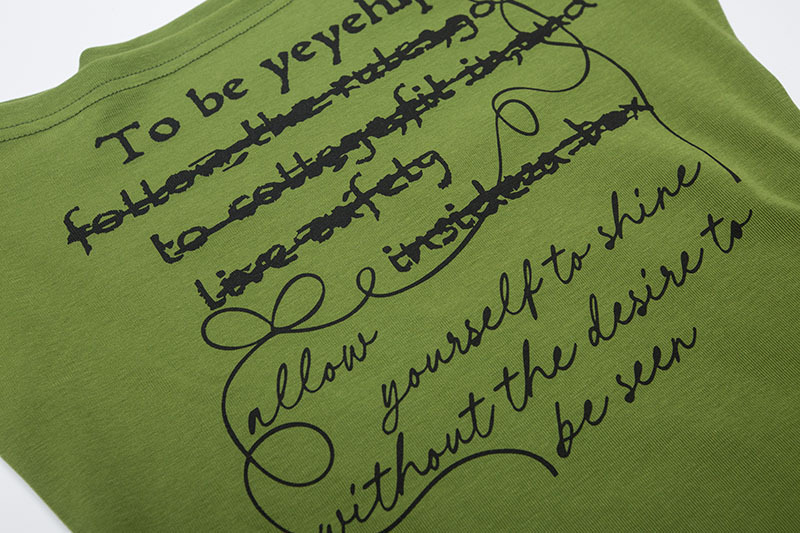 To be
follow the rules,go
to college,fit in,and
Live safely inside a box
allow yourself to shine
without the desire to
be seen